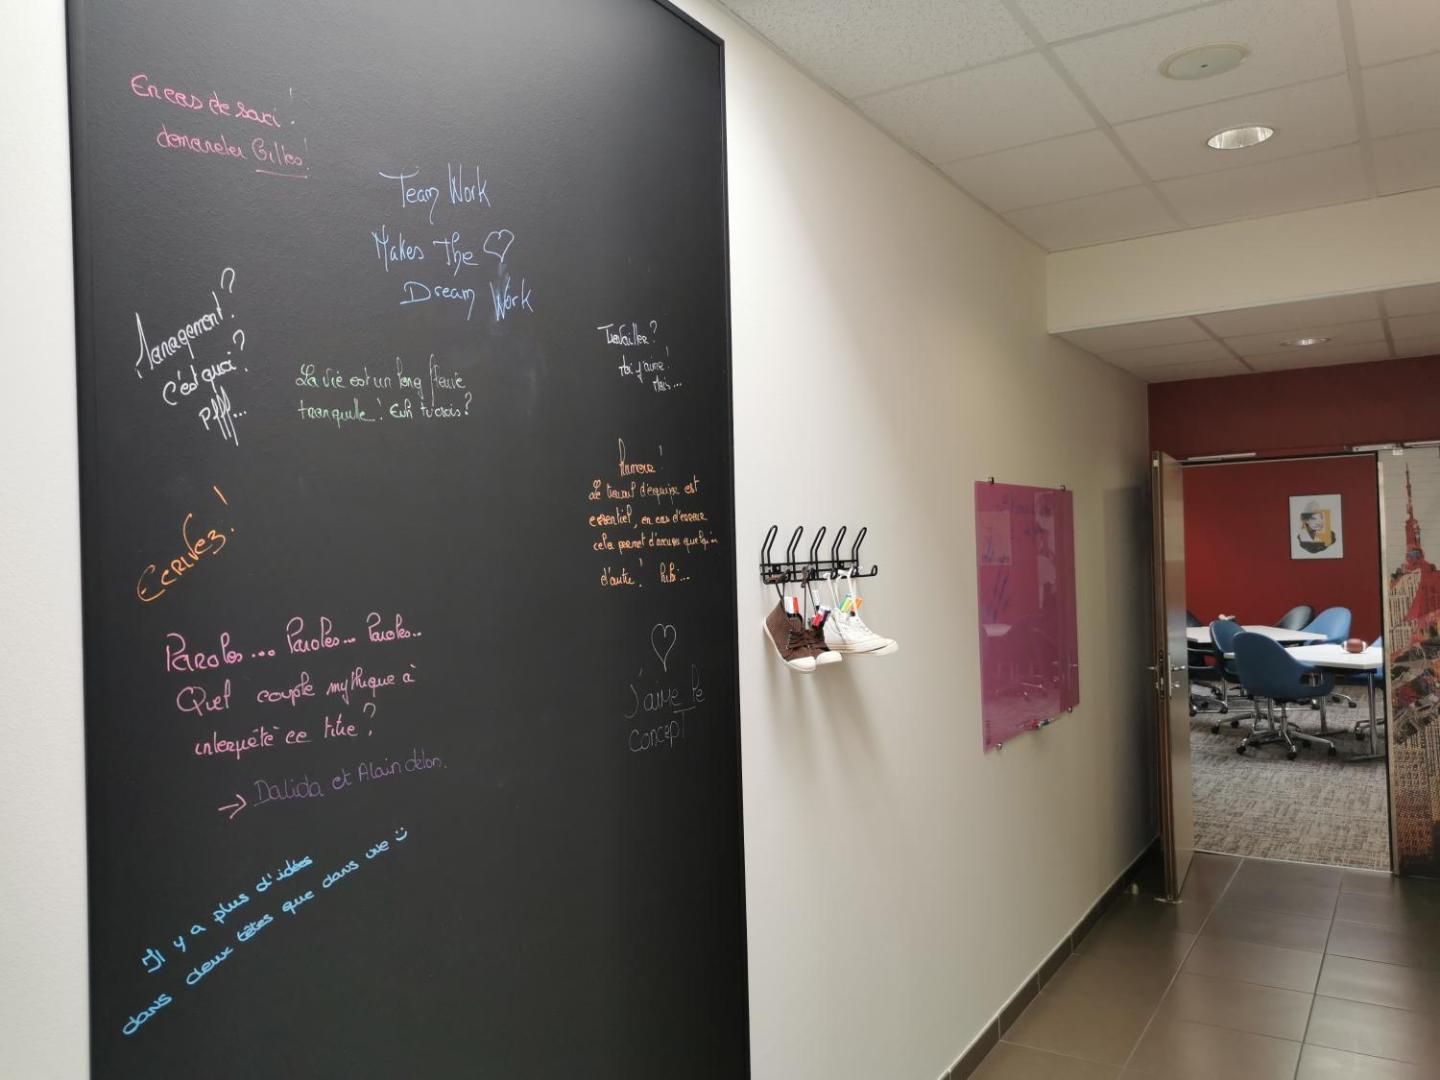 En cas de souci !
demander Gilles !
Team Work
Makes The
Dream Work
Management ?
c'est quoi ?
Pfff...
La vie est un long fleuve
tranquille ! Euh tu crois ?
Travailler ?
Moi j'aime !
Mais...
Ecrivez !
Le travail d'équipe est
essentiel, en cas d'erreur
cela permet d'accuser quelqu'un
d'autre ! hihi...
Paroles... Paroles... Paroles..
Quel couple mythique à
interprété ce titre ?
→ Dalida et Alain delon.
J'aime le
concept
Il y a plus d'idées
dans deux têtes que dans une